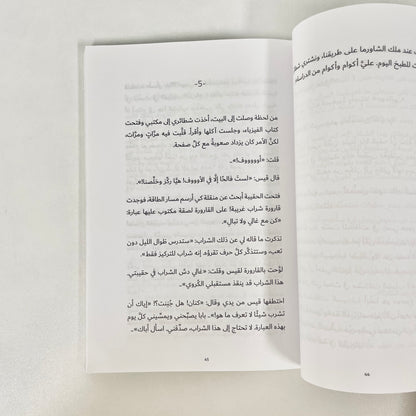 عند ملك الشاورما على طريقنا، ونشتري
للطبخ اليوم. عليَّ أكوام وأكوام من الدراسة
-5-
من لحظة وصلت إلى البيت، أخذت شطائري إلى مكتبي وفتحت
كتاب الفيزياء، وجلست آكلها وأقرأ. قلّبت فيه مرّاتٍ ومرّات،
لكنَّ الأمر كان يزداد صعوبةً مع كلّ صفحة.
قلت: «أوووووف!».
قال قيس: «لستَ فالحًا إلّا في الأوووف! هيّا ركّز وخلّصنا!».
فتحت الحقيبة أبحث عن منقلة كي أرسم مسار الطاقة، فوجدت
قارورة شراب غريبة! على القارورة لصقة مكتوب عليها عبارة:
«كن مع غالي ولا تبالِ».
تذكرت ما قاله لي عن ذلك الشراب: «ستدرس طوال الليل دون
تعب، وستتذكّر كلّ حرف تقرؤه. إنه شراب للتركيز فقط».
لوَّحت بالقارورة لقيس وقلت: «غالي دسَّ الشراب في حقيبتي.
هذا الشراب قد ينقذ مستقبلي الكروي».
اختطفها قيس من يدي وقال: «كنان! هل جُننت؟! إياك أن
تشرب شيئًا لا تعرف ما هو! .. بابا يصبّحني ويمسّيني كلَّ يوم
بهذه العبارة. لا تحتاج إلى هذا الشراب، صدِّقني. اسأل أباك».